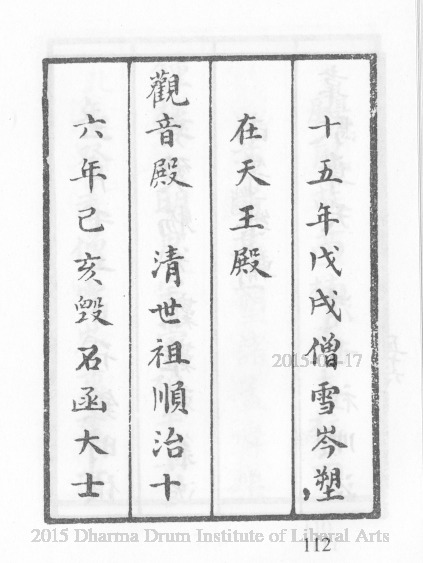 十五年戊戌僧雪岑塑
在天王殿
觀音殿 清世祖順治十
六年己亥毀名函大士
2015-04-17
2015 Dharma Drum Institute of Liberal Arts
112